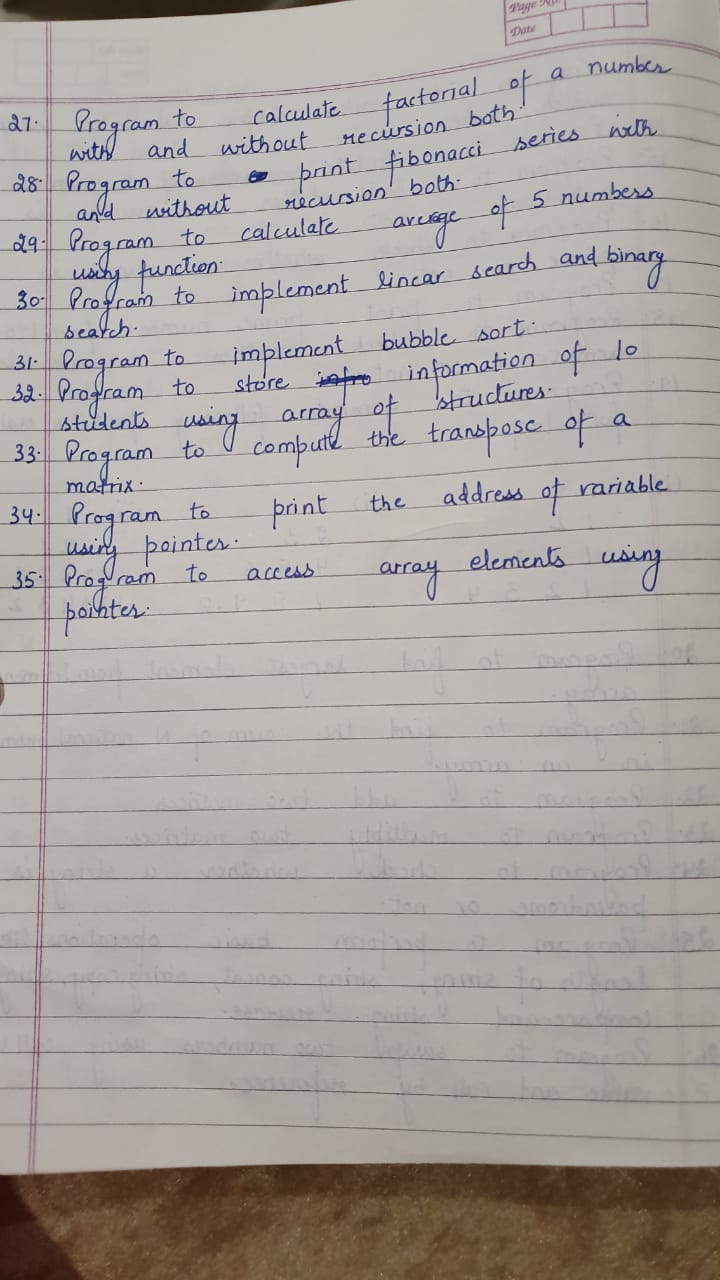 Page No.
Date
27. Program to calculate factorial of a number
with and without recursion both.
28. Program to print fibonacci series with
and without recursion both.
29. Program to calculate average of 5 numbers
using function.
30. Program to implement linear search and binary
search.
31. Program to implement bubble sort.
32. Program to store information of 10
students using array of structures.
33. Program to compute the transpose of a
matrix.
34. Program to print the address of variable
using pointer.
35. Program to access array elements using
pointer.